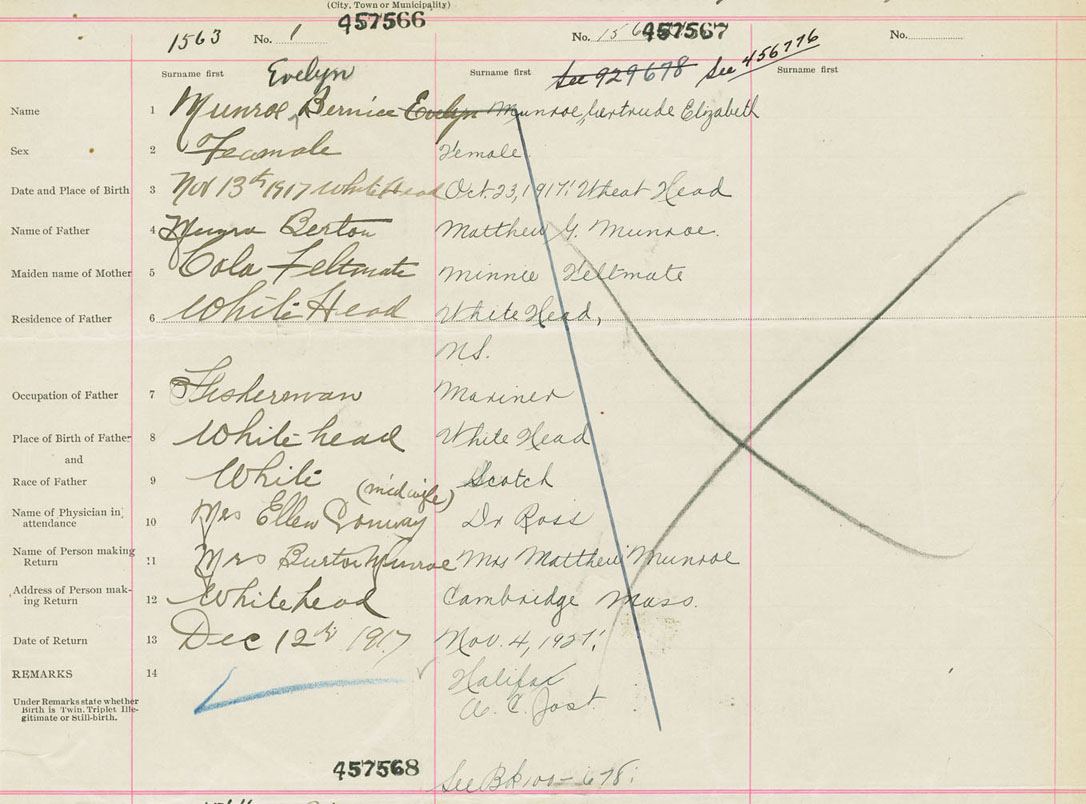 (City, Town or Municipality)
457566
1563 No. 1
No. 156 457567
No.
Surname first
Evelyn
Surname first
See 929678 See 456776
Surname first
Name 1 Munroe Bernice Evelyn Munroe, Gertrude Elizabeth
Sex 2 Feamale Female
Date and Place of Birth 3 Nov 13th 1917 White Head Oct. 23, 1917: Wheat Head
Name of Father 4 Munro Berton Matthew G. Munroe.
Maiden name of Mother 5 Cola Feltmate Minnie Feltmate
Residence of Father 6 White Head White Head,
N.S.
Occupation of Father 7 Fisherman Mariner
Place of Birth of Father 8 White head White Head
and
Race of Father 9 White Scotch
(midwife)
Name of Physician in attendance 10 Mrs Ellen Conway Dr Ross
Name of Person making Return 11 Mrs Burton Munroe Mrs Matthew Munroe
Address of Person making Return 12 Whitehead Cambridge Mass.
Date of Return 13 Dec 12th 1917 Nov. 4, 1927:
REMARKS 14 Halifax
Under Remarks state whether Birth is Twin, Triplet Illegitimate or Still-birth.
A. C. Jost.
457568
See Bk 100 - 678.